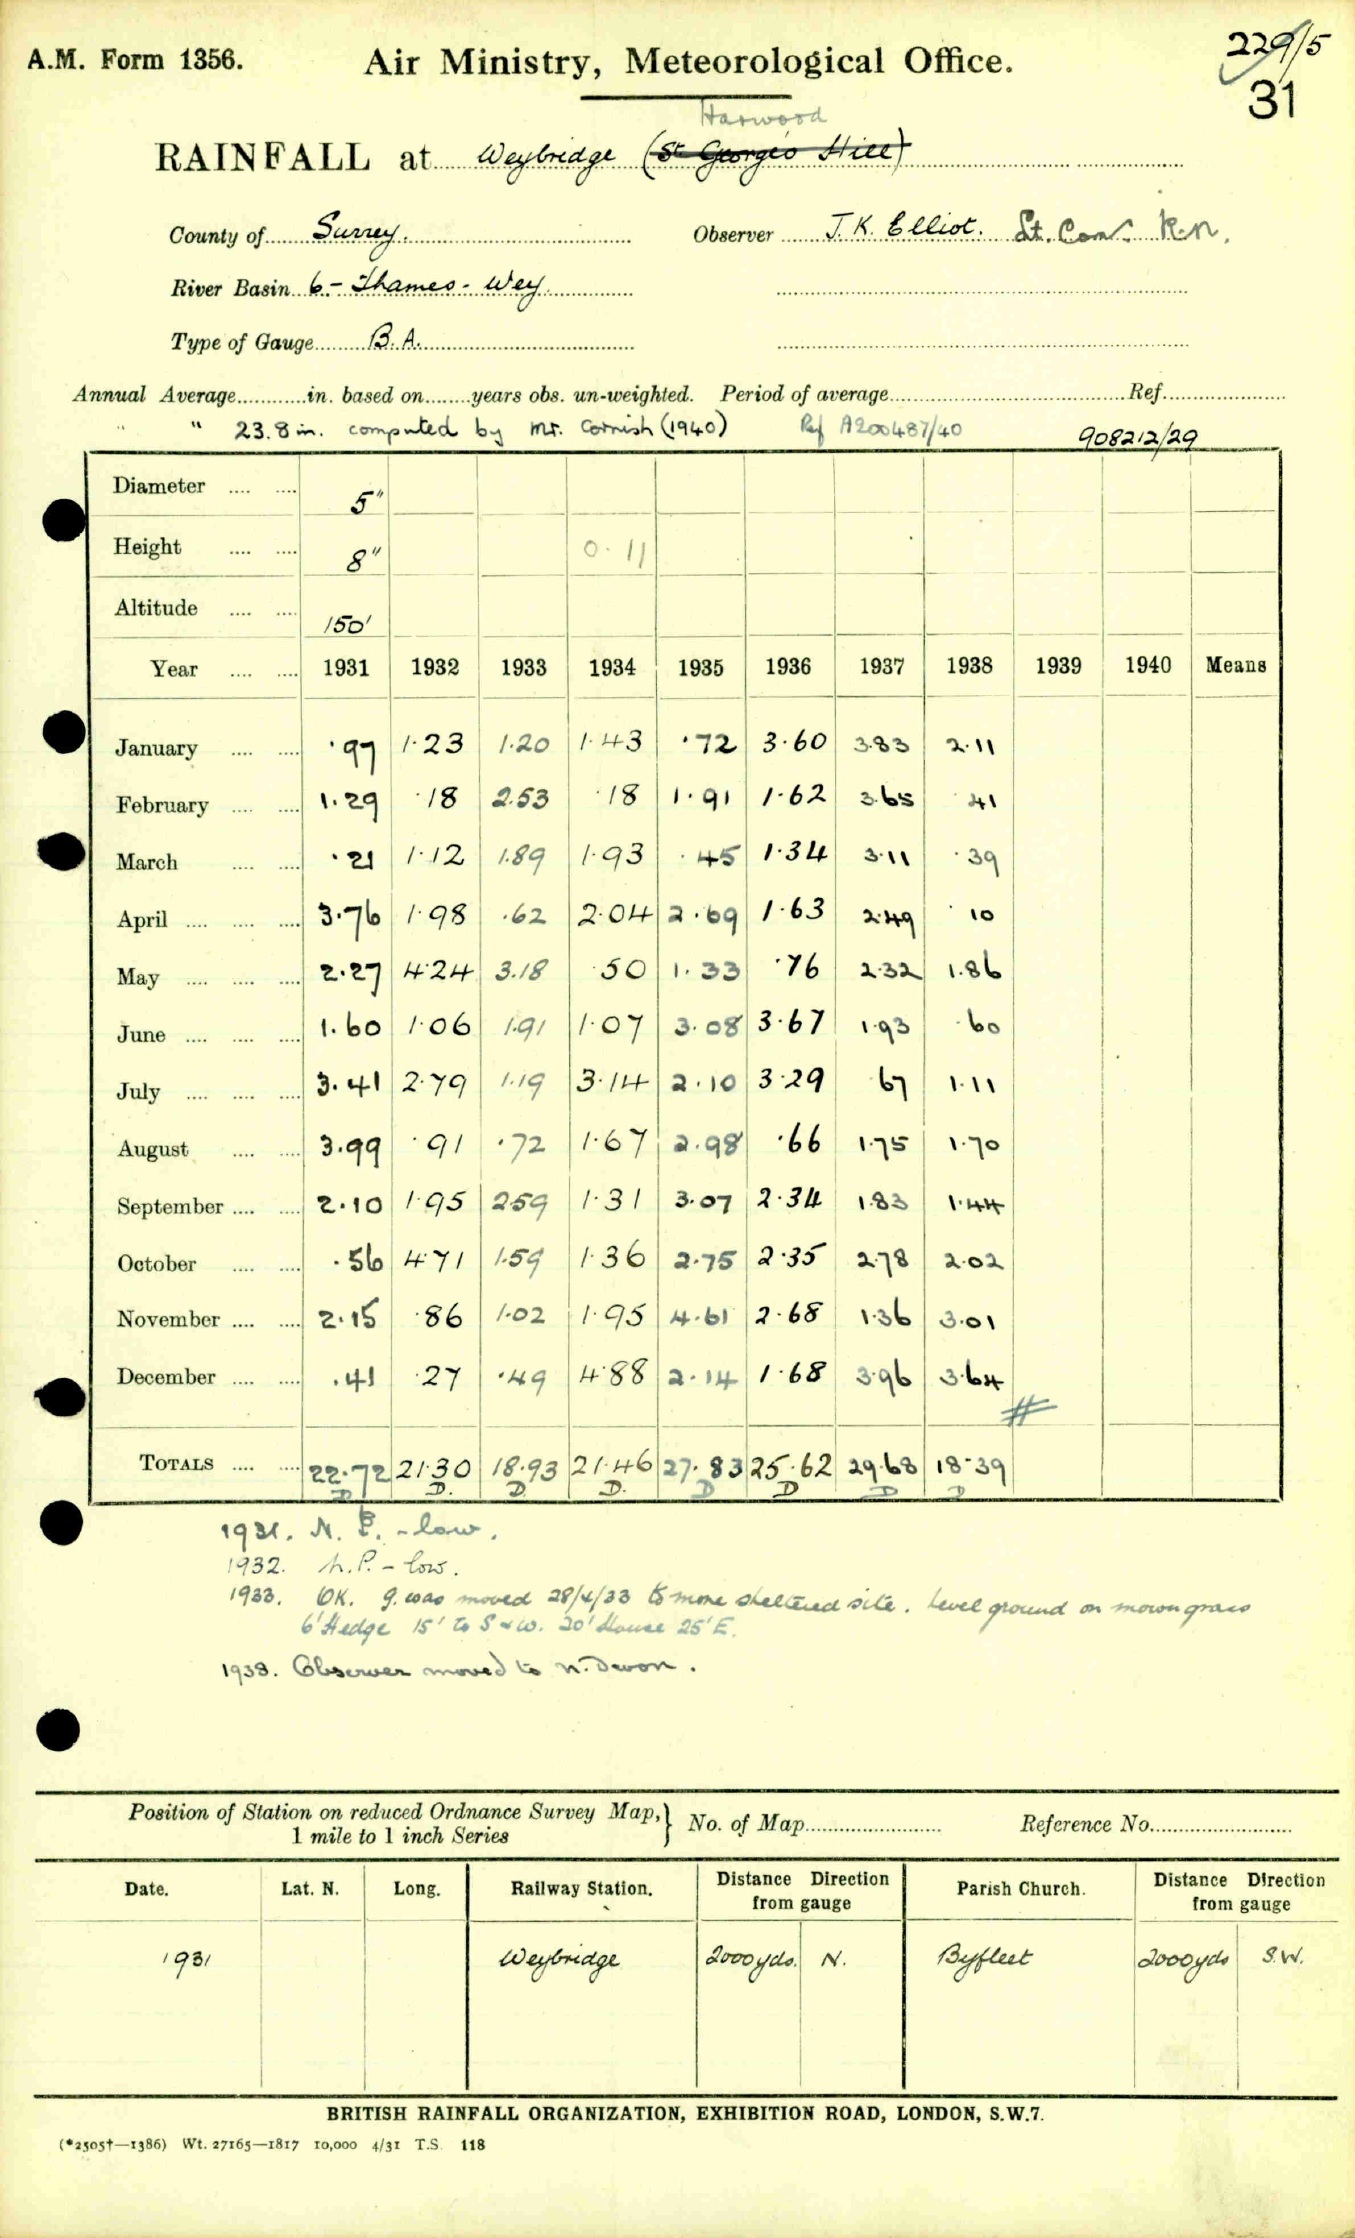 A.M. Form 1356.
Air Ministry, Meteorological Office.
229/5
31
Harwood
RAINFALL at Weybridge (St George's Hill)
County of Surrey. Observer J.K. Elliot. Lt. Com. R.N.
River Basin 6 - Thames - Wey
Type of Gauge B.A.
Annual Average in. based on years obs. un-weighted. Period of average Ref.
" " 23.8 in. computed by Mr. Cornish (1940) Ref A200487/40 908212/29
Diameter 5"
Height 8" 0.11
Altitude 150'
Year 1931 1932 1933 1934 1935 1936 1937 1938 1939 1940 Means
January ·97 1·23 1·20 1·43 ·72 3·60 3·83 2·11
February 1·29 ·18 2·53 ·18 1·91 1·62 3·65 ·41
March ·21 1·12 1·89 1·93 ·45 1·34 3·11 ·39
April 3·76 1·98 ·62 2·04 2·69 1·63 2·49 ·10
May 2·27 4·24 3·18 ·50 1·33 ·76 2·32 1·86
June 1·60 1·06 1·91 1·07 3·08 3·67 1·93 ·60
July 3·41 2·79 1·19 3·14 2·10 3·29 ·67 1·11
August 3·99 ·91 ·72 1·67 2·98 ·66 1·75 1·70
September 2·10 1·95 2·59 1·31 3·07 2·34 1·83 1·44
October ·56 4·71 1·59 1·36 2·75 2·35 2·78 2·02
November 2·15 ·86 1·02 1·95 4·61 2·68 1·36 3·01
December ·41 ·27 ·49 4·88 2·14 1·68 3·96 3·64
#
TOTALS 22·72 21·30 18·93 21·46 27·83 25·62 29·68 18·39
D D. D D. D D D D
1931. N.P. - low.
1932. N.P. - low.
1933. OK. g. was moved 28/4/33 to more sheltered site. Level ground on mown grass
6' Hedge 15' to S & W. 20' House 25' E.
1938. Observer moved to N. Devon.
Position of Station on reduced Ordnance Survey Map, } No. of Map Reference No.
1 mile to 1 inch Series
Date. Lat. N. Long. Railway Station. Distance Direction from gauge Parish Church. Distance Direction from gauge
1931 Weybridge 2000yds. N. Byfleet 2000yds S.W.
BRITISH RAINFALL ORGANIZATION, EXHIBITION ROAD, LONDON, S.W.7.
(*2505†—1386) Wt. 27165—1817 10,000 4/31 T.S. 118